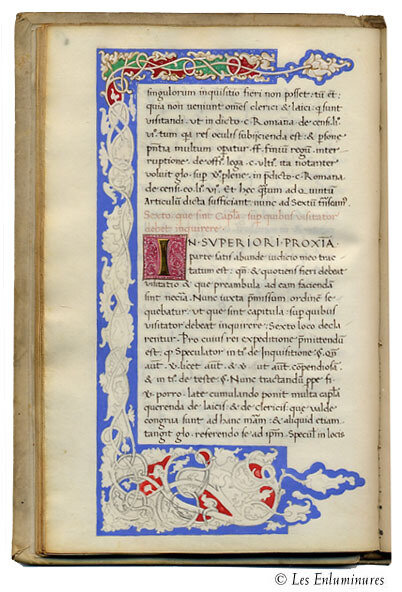 singulorum inquisitio fieri non posset: tū et:
quia non veniunt omēs clerici & laici q̄ sunt
visitandi. ut in dicto. c. Romana. de censi. li.
vi. tum qa res oculis subijcienda est: & psone
pn̄tia multum opatur. ff. finiū regū. inter-
ruptione. de offi. lega. c. ulti. ita notanter
voluit glo. sup. plene. in pdicto. c. Romana.
de censi. eo. li. vi. Et hec q̄tum ad. Q. uintū
Articulū dicta sufficiant: nunc ad Sextū
Sexto. que sint. Capla. sup quibus visitator
debet inquirere.
IN. SVPERIORI. PROXIA.
parte satis abunde iudicio meo trac
tatum est. qn̄. & quotiens fieri debeat
visitatio & que preambula ad eam facienda
sint necīa. Nunc iuxta pmissum ordinē se-
quebatur. ut que sint capitula. sup quibus
visitator debeat inquirere. Sexto loco decla
rentur. Pro cuius rei expeditione pmittendū
est. q. Speculator in ti. de Inquisitione. §. qn̄
aūt. X. licet. aūt. & X. ut aūt. copendiosa.
& in ti. de teste. §. Nunc tractandū ppe fi
X. porro. late cumulando ponit multa capla
querenda de laicis. & de clericis. que valde
congrua sunt ad hanc mām. & aliquid etiam
tangit glo. referendo se ad ipm̄. Specul. in locis
© Les Enluminures